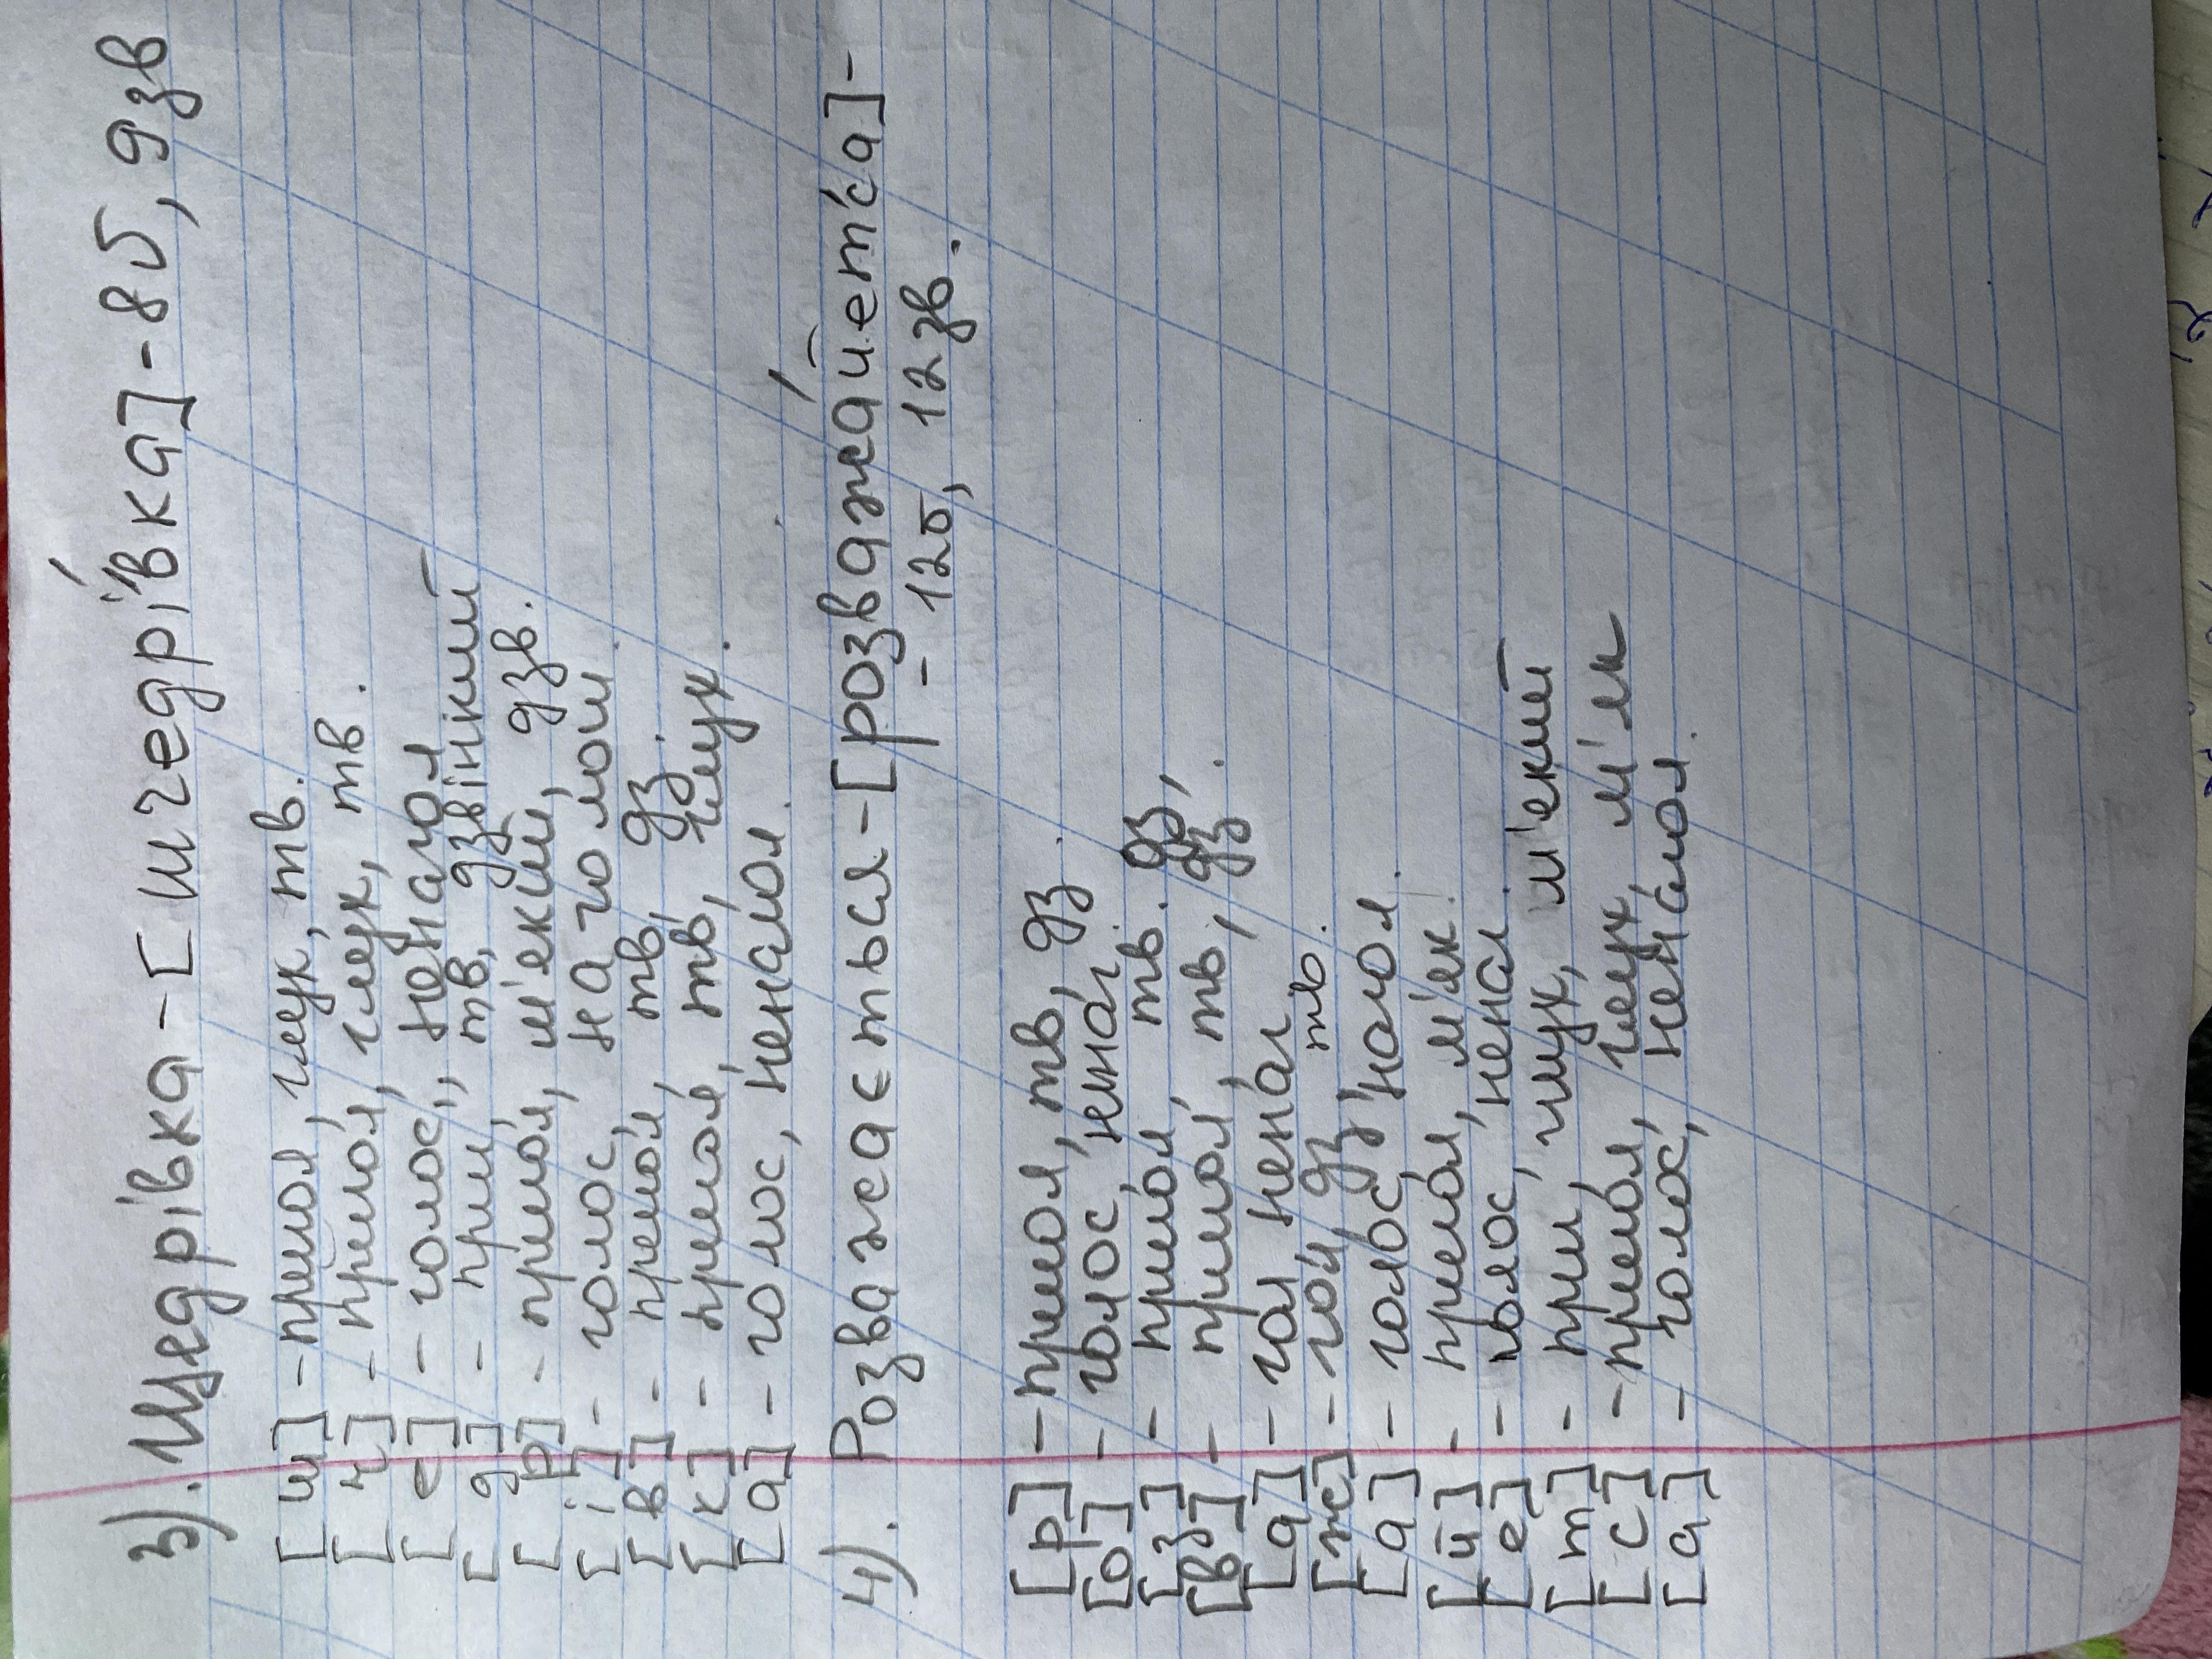 3). Щедрівка - [шчедрівка] - 8б, 9зв
[ш] - пригол, глух, тв.
[ч] - пригол, глух, тв.
[е] - голос, ненагол
[д] - при, тв, дзвінкий
[р] - пригол, м'який, дзв.
[і] - голос, наголош.
[в] - пригол, тв, дз.
[к] - пригол, тв, глух.
[а] - голос, ненагол.
4). Розважається - [розважайет'с'а] -
- 12б, 12 зв.
[р] - пригол, тв, дз.
[о] - голос, ненаг.
[з] - пригол, тв. дз,
[в] - пригол, тв, дз.
[а] - гол, ненаг
[ж] - дз, тв.
[а] - голос, нагол.
[й] - пригол, м'як.
[е] - голос, ненаг.
[т] - при, глух, м'який
[с] - пригол, глух, м'як
[а] - голос, ненагол.